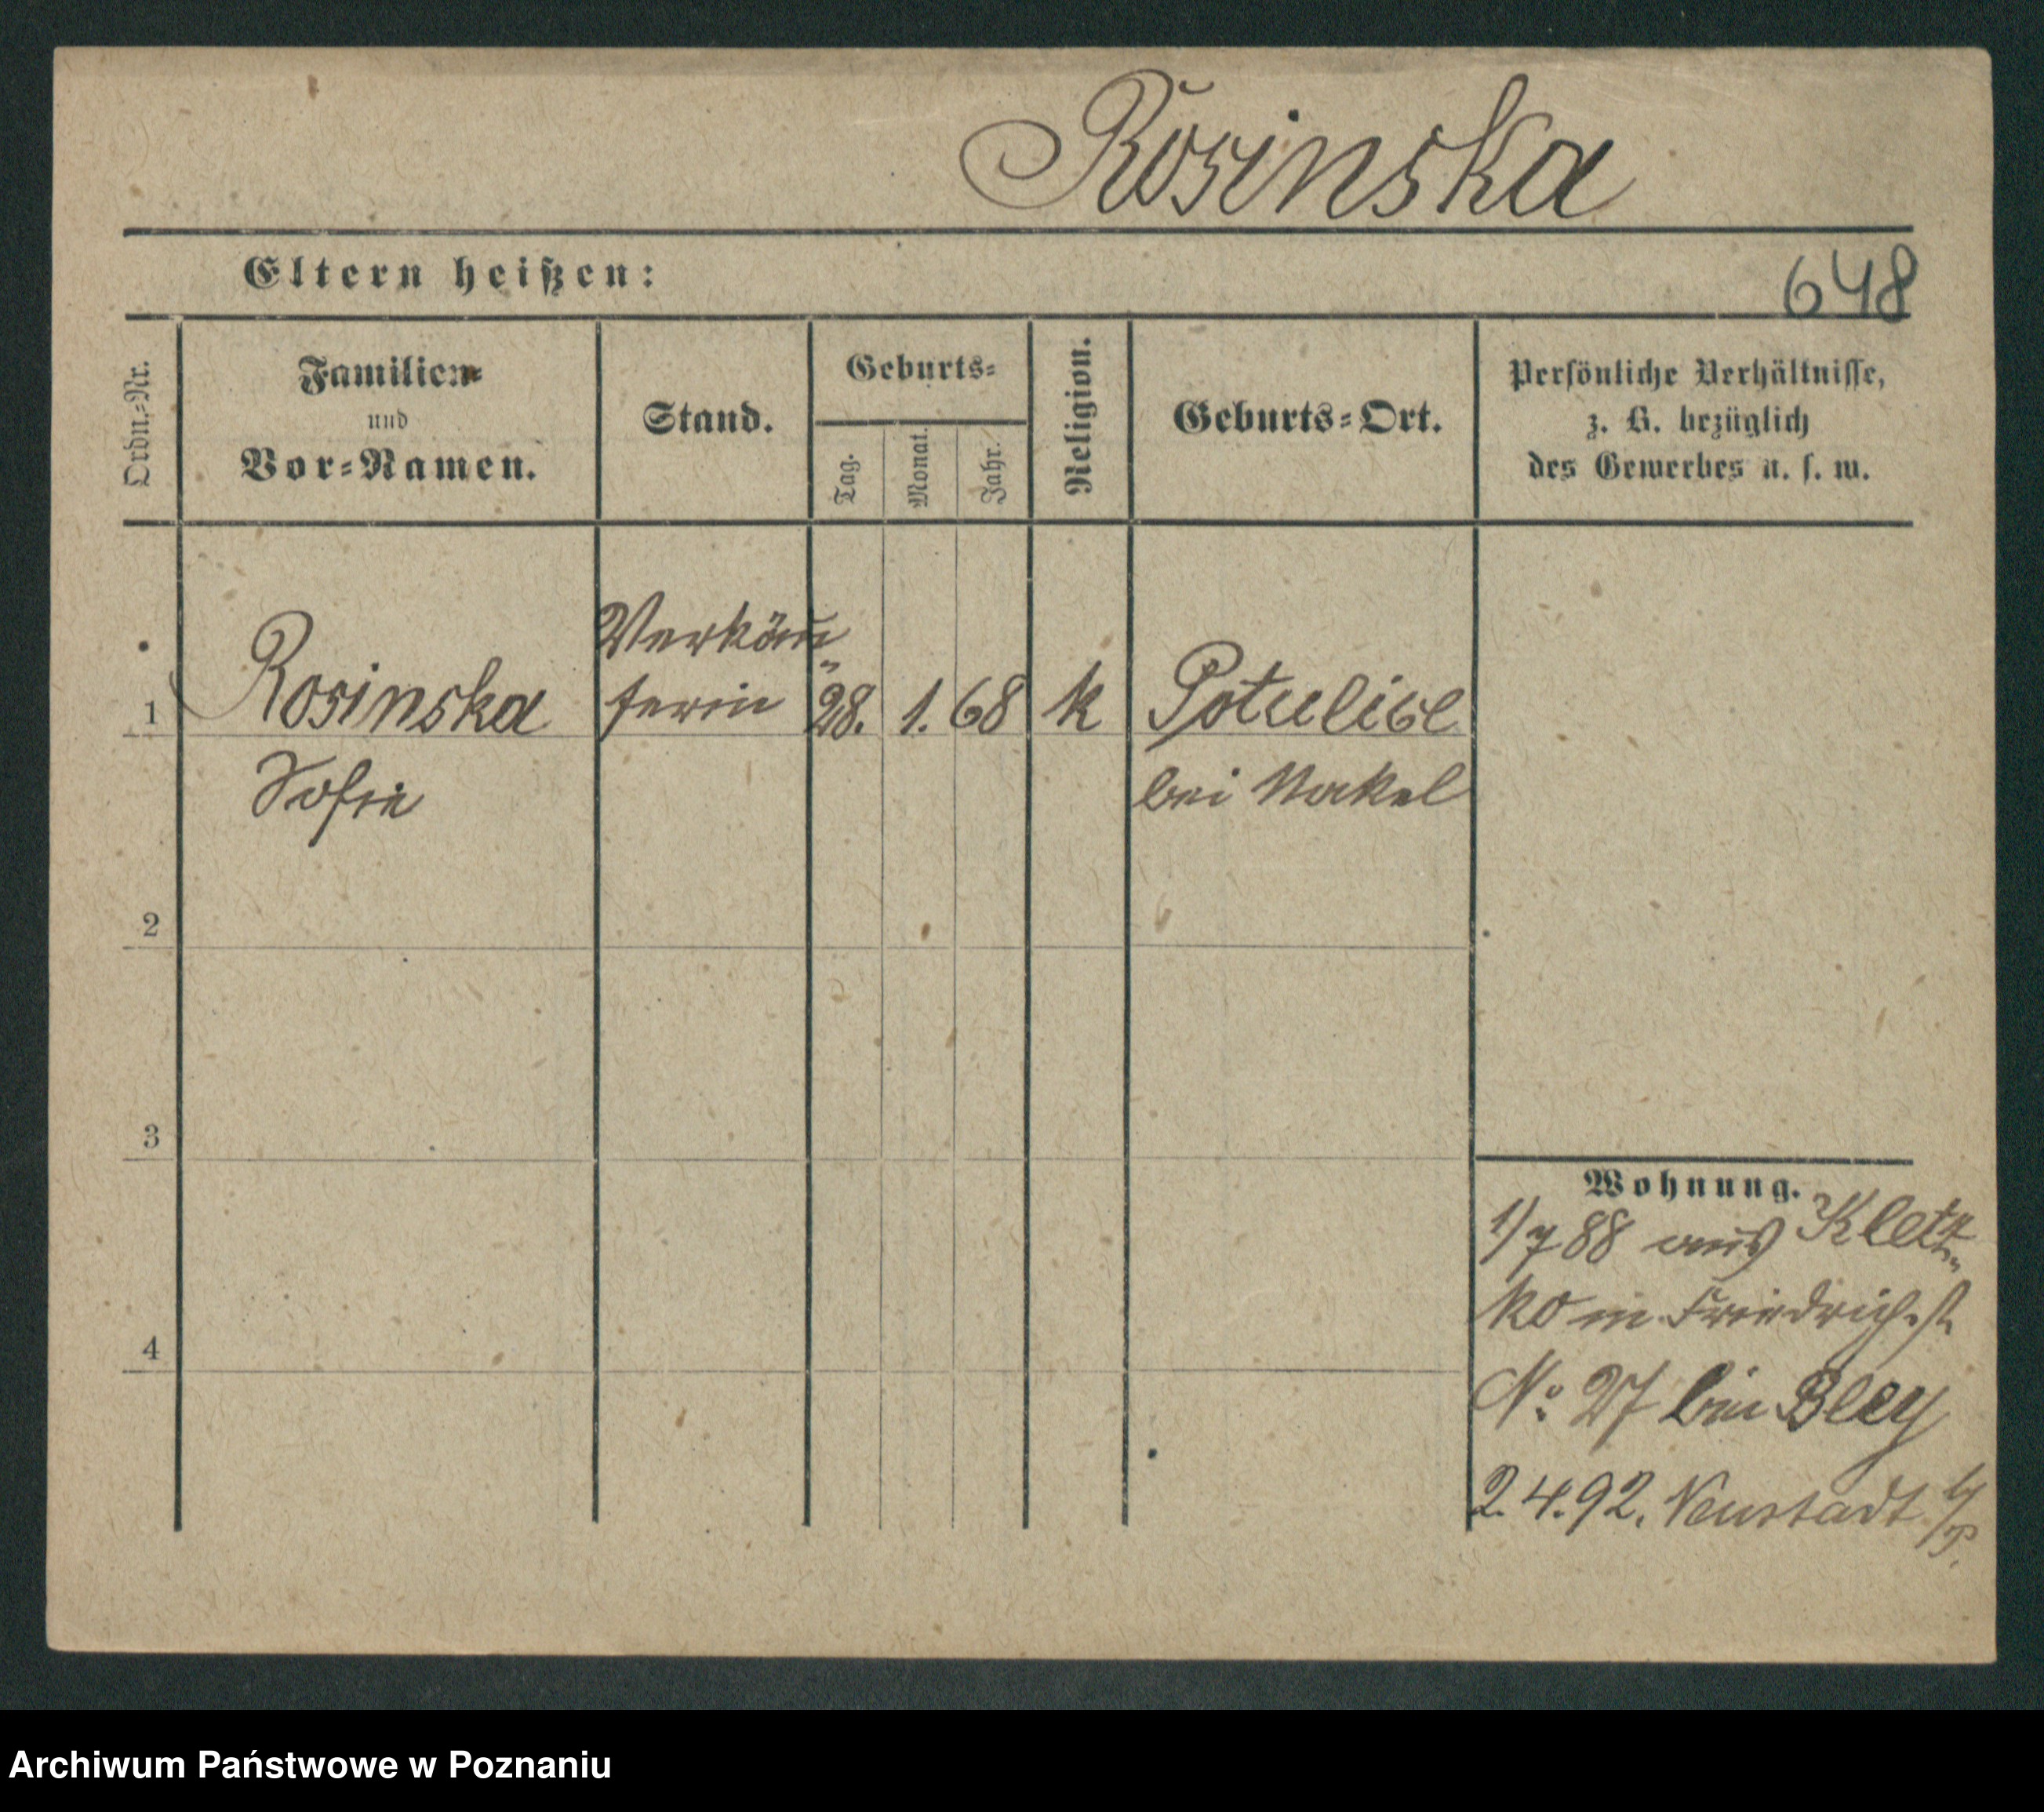 Rosinska
Eltern heißen:
648
Ordn.-Nr.
Familien-
und
Vor-Namen.
Stand.
Geburts-
Tag.
Monat.
Jahr.
Religion.
Geburts-Ort.
Persönliche Verhältnisse,
z. B. bezüglich
des Gewerbes u. s. w.
Verkäu
1 Rosinska ferin 28. 1. 68 k Potulice
Sofie bei Nakel
2
3
4
Wohnung.
1/7 88 aus Kletz-
ko in Friedrich. st.
No. 27 bei Bley
2.4.92. Neustadt
Archiwum Państwowe w Poznaniu